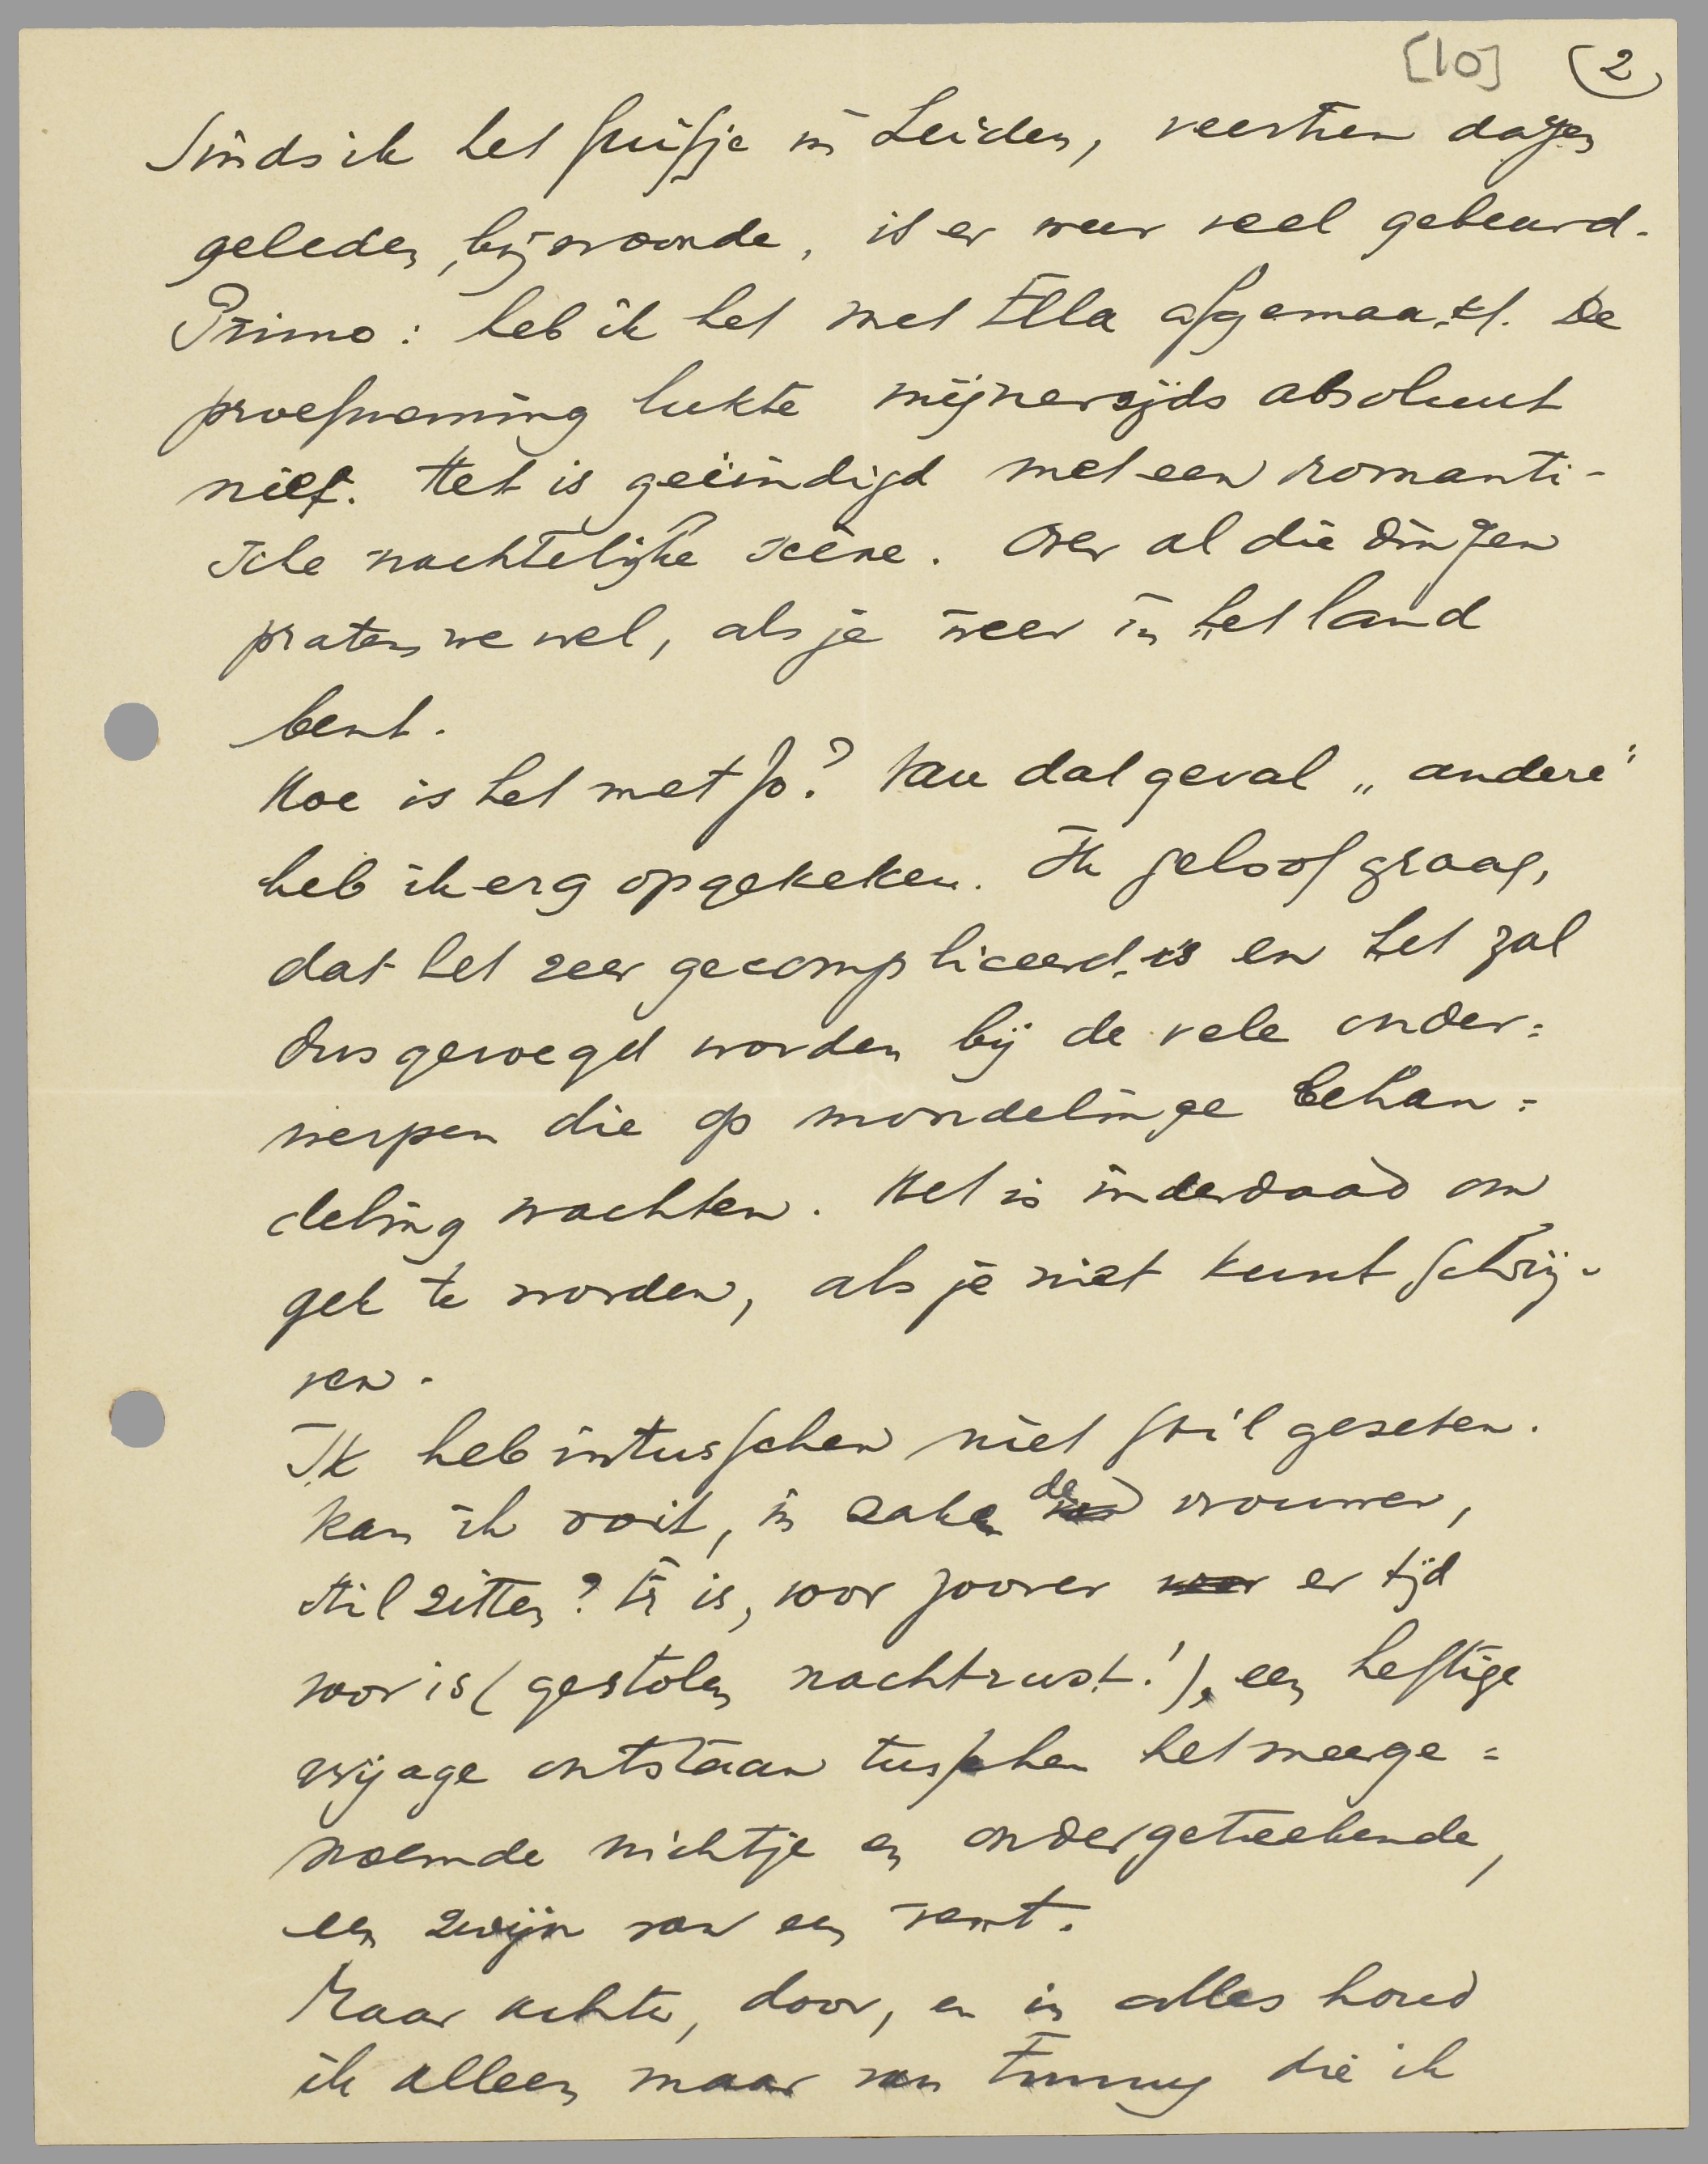 [10] (2)
Sinds ik het fuifje in Leiden, veertien dagen
geleden, bijwoonde, is er weer veel gebeurd.
Primo: heb ik het met Ella afgemaakt. De
proefneming lukte mijnerzijds absoluut
niet. Het is geëindigd met een romanti-
sche nachtelijke scène. Over al die dingen
praten we wel, als je weer in het land
bent.
Hoe is het met Jo? Van dat geval „andere"
heb ik erg opgekeken. Ik geloof graag,
dat het zeer gecompliceerd is en het zal
dus gevoegd worden bij de vele onder=
werpen die op mondelinge behan=
deling wachten. Het is inderdaad om
gek te worden, als je niet kunt schrij-
ven.
Ik heb intusschen niet stil gezeten.
Kan ik ooit, in zake de vrouwen,
stil zitten? Er is, voor zoover er tijd
voor is (gestolen nachtrust!), een heftige
vrijage ontstaan tusschen het meerge=
noemde nichtje en ondergeteekende,
een zwijn van een vent.
Maar achter, door, en in alles houd
ik alleen maar van Emmy die ik